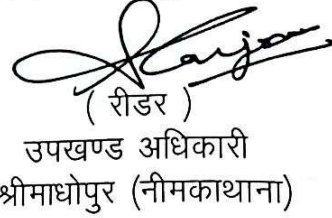 ( रीडर )
उपखण्ड अधिकारी
श्रीमाधोपुर (नीमकाथाना)